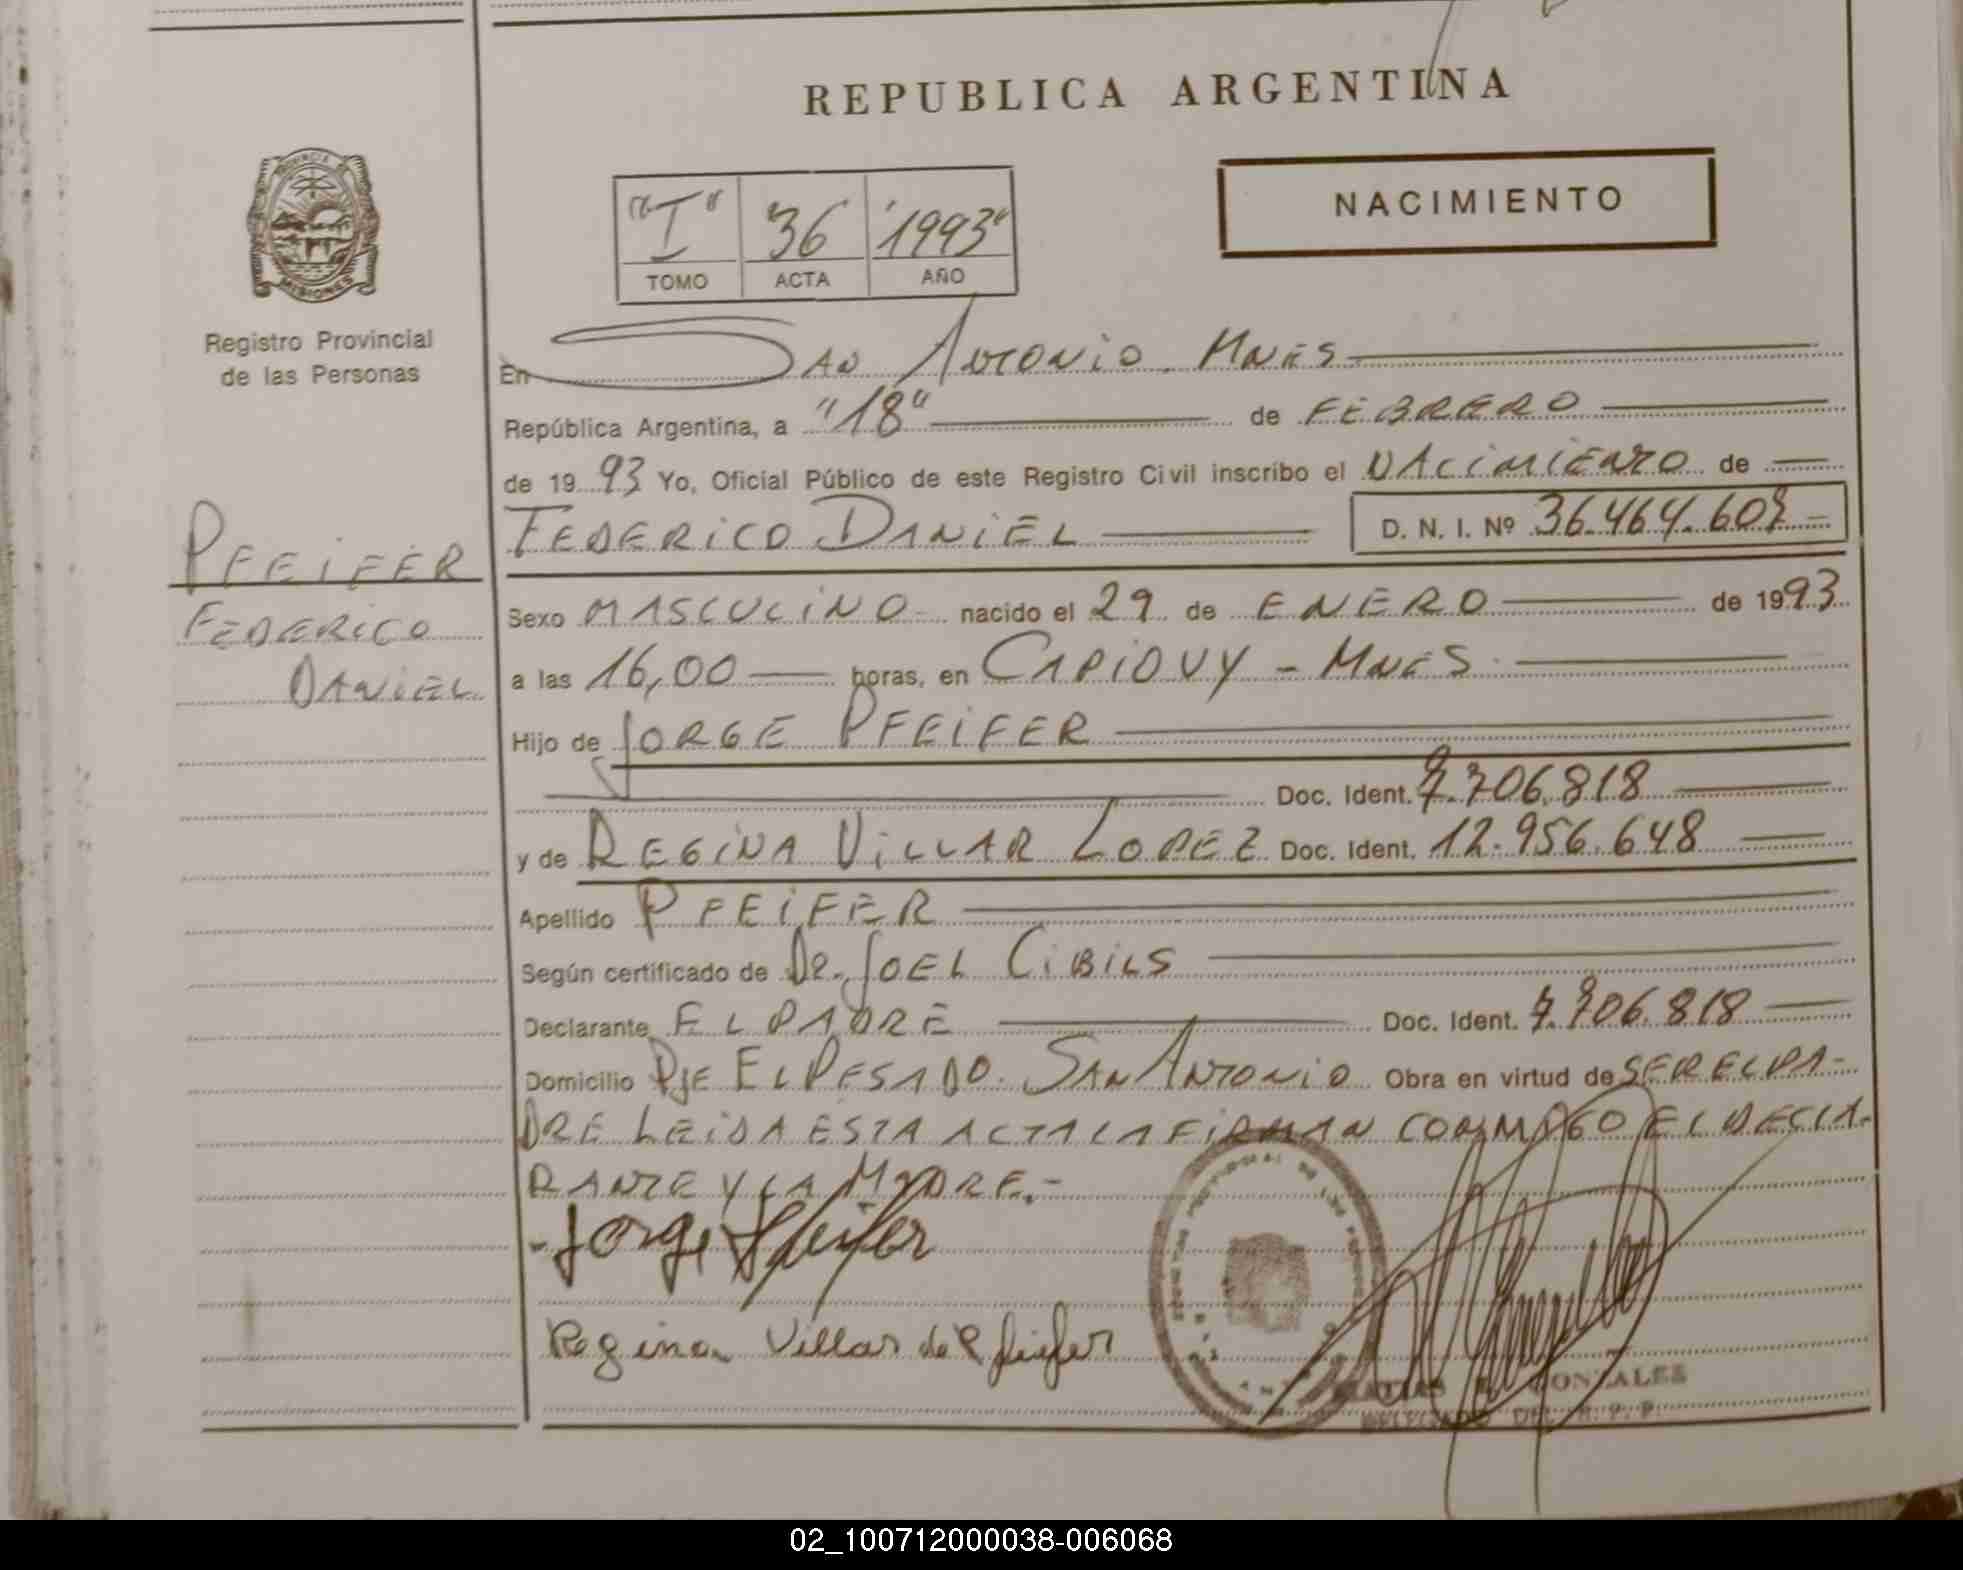 REPUBLICA ARGENTINA
NACIMIENTO
"I" 36 "1993"
TOMO ACTA AÑO
PROVINCIA DE
MISIONES
Registro Provincial
de las Personas
PFEIFER
FEDERICO
DANIEL
En SAN ANTONIO. MNES
República Argentina, a "18" de FEBRERO
de 1993 Yo, Oficial Público de este Registro Civil inscribo el NACIMIENTO de
FEDERICO DANIEL D. N. I. Nº 36.464.60
Sexo MASCULINO nacido el 29 de ENERO de 1993
a las 16,00 horas, en CAPIOVY - MNES.
Hijo de JORGE PFEIFER
Doc. Ident. 706.818
y de REGINA VILLAR LOPEZ Doc. Ident. 12.956.648
Apellido PFEIFER
Según certificado de DR. JOEL CIBILS
Declarante EL PADRE Doc. Ident. 706.818
Domicilio PJE EL PESADO. SAN ANTONIO Obra en virtud de SER EL PA-
DRE LEIDA ESTA ACTA LA FIRMAN CONMIGO EL DECLA-
RANTE Y LA MADRE.-
Jorge Pfeifer
Regina Villar de Pfeifer
GONZALES
DELEGADO DEL R. P. P.
02_100712000038-006068